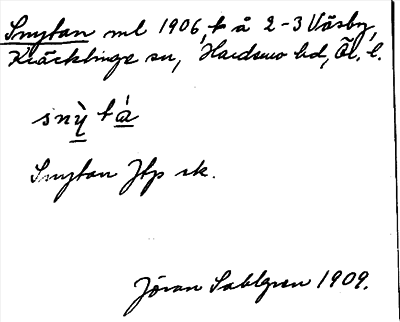 Snytan ml 1906, t å 2-3 Väsby,
Kräcklinge sn, Hardemo hd, Ör. l.
snỳtá
Snytan Jtp sk.
Jöran Sahlgren 1909.